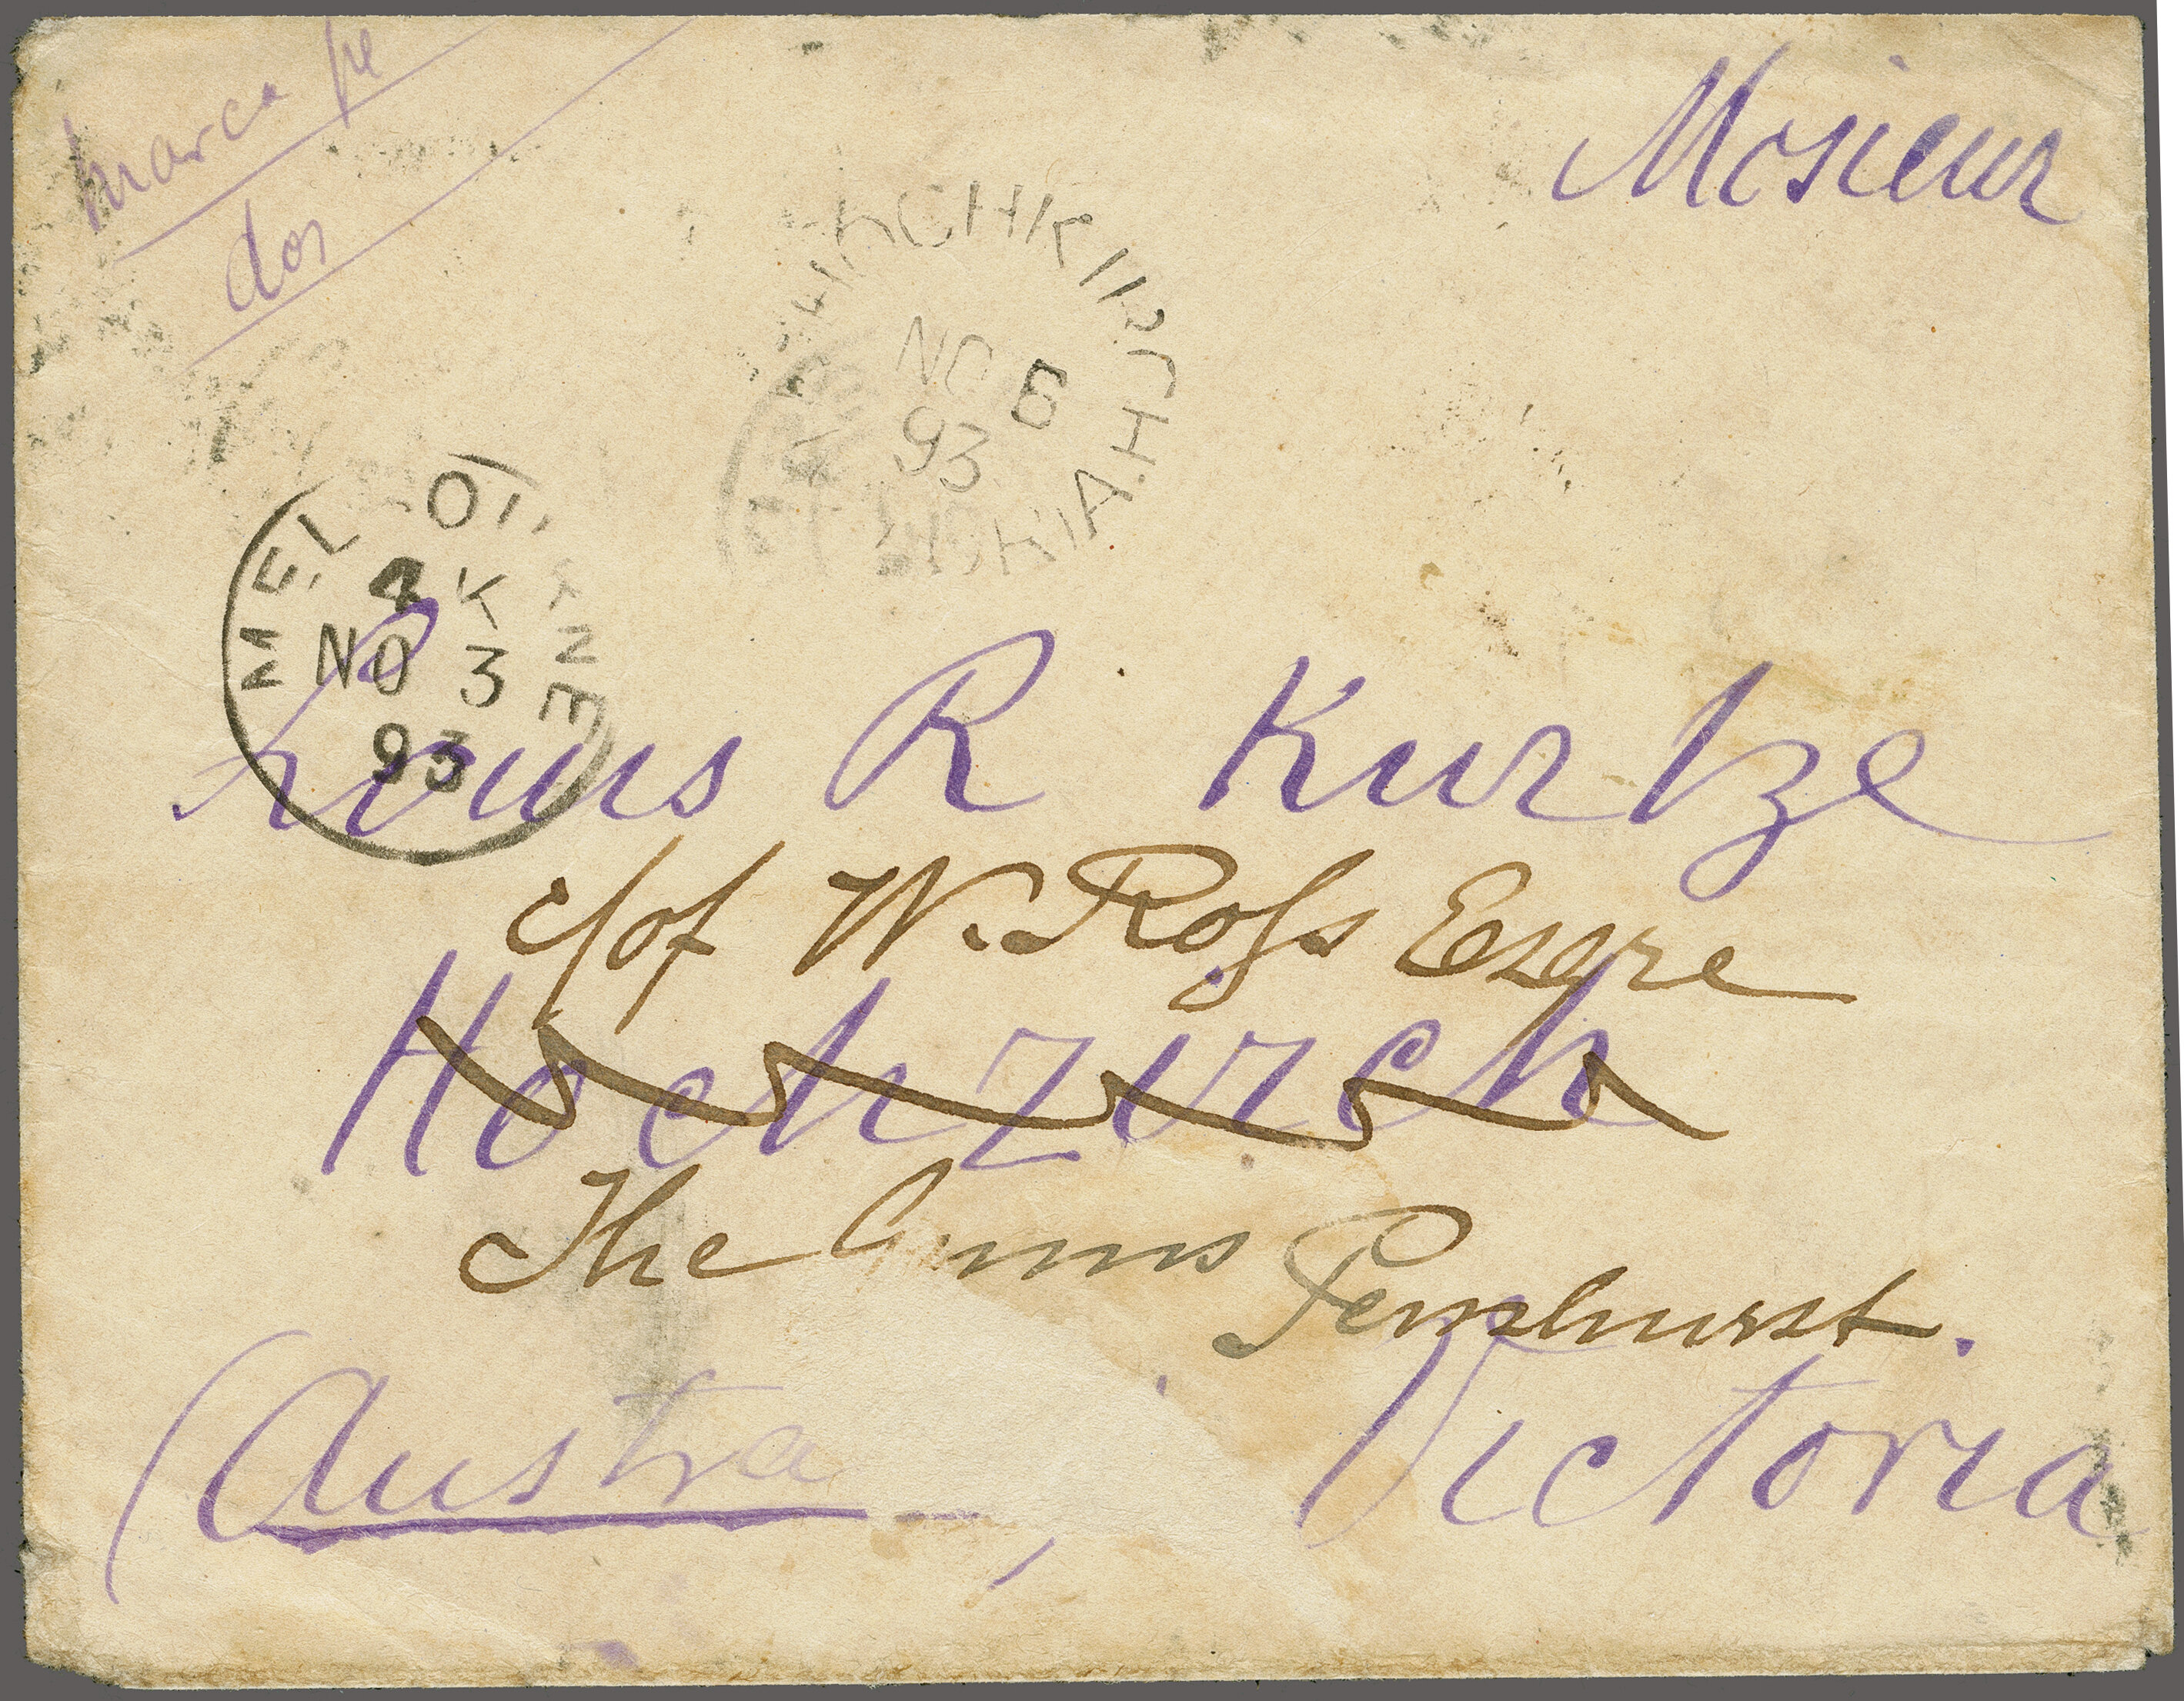 marca pe
dos
Mosieur
HOCHKIRCH
NO 6
93
MELBOURNE
4 K
NO 3
93
Louis R Kurtze
c/of W. Ross Esqre
Hochzirch
The Gums Penshurst.
Victoria
(Austra